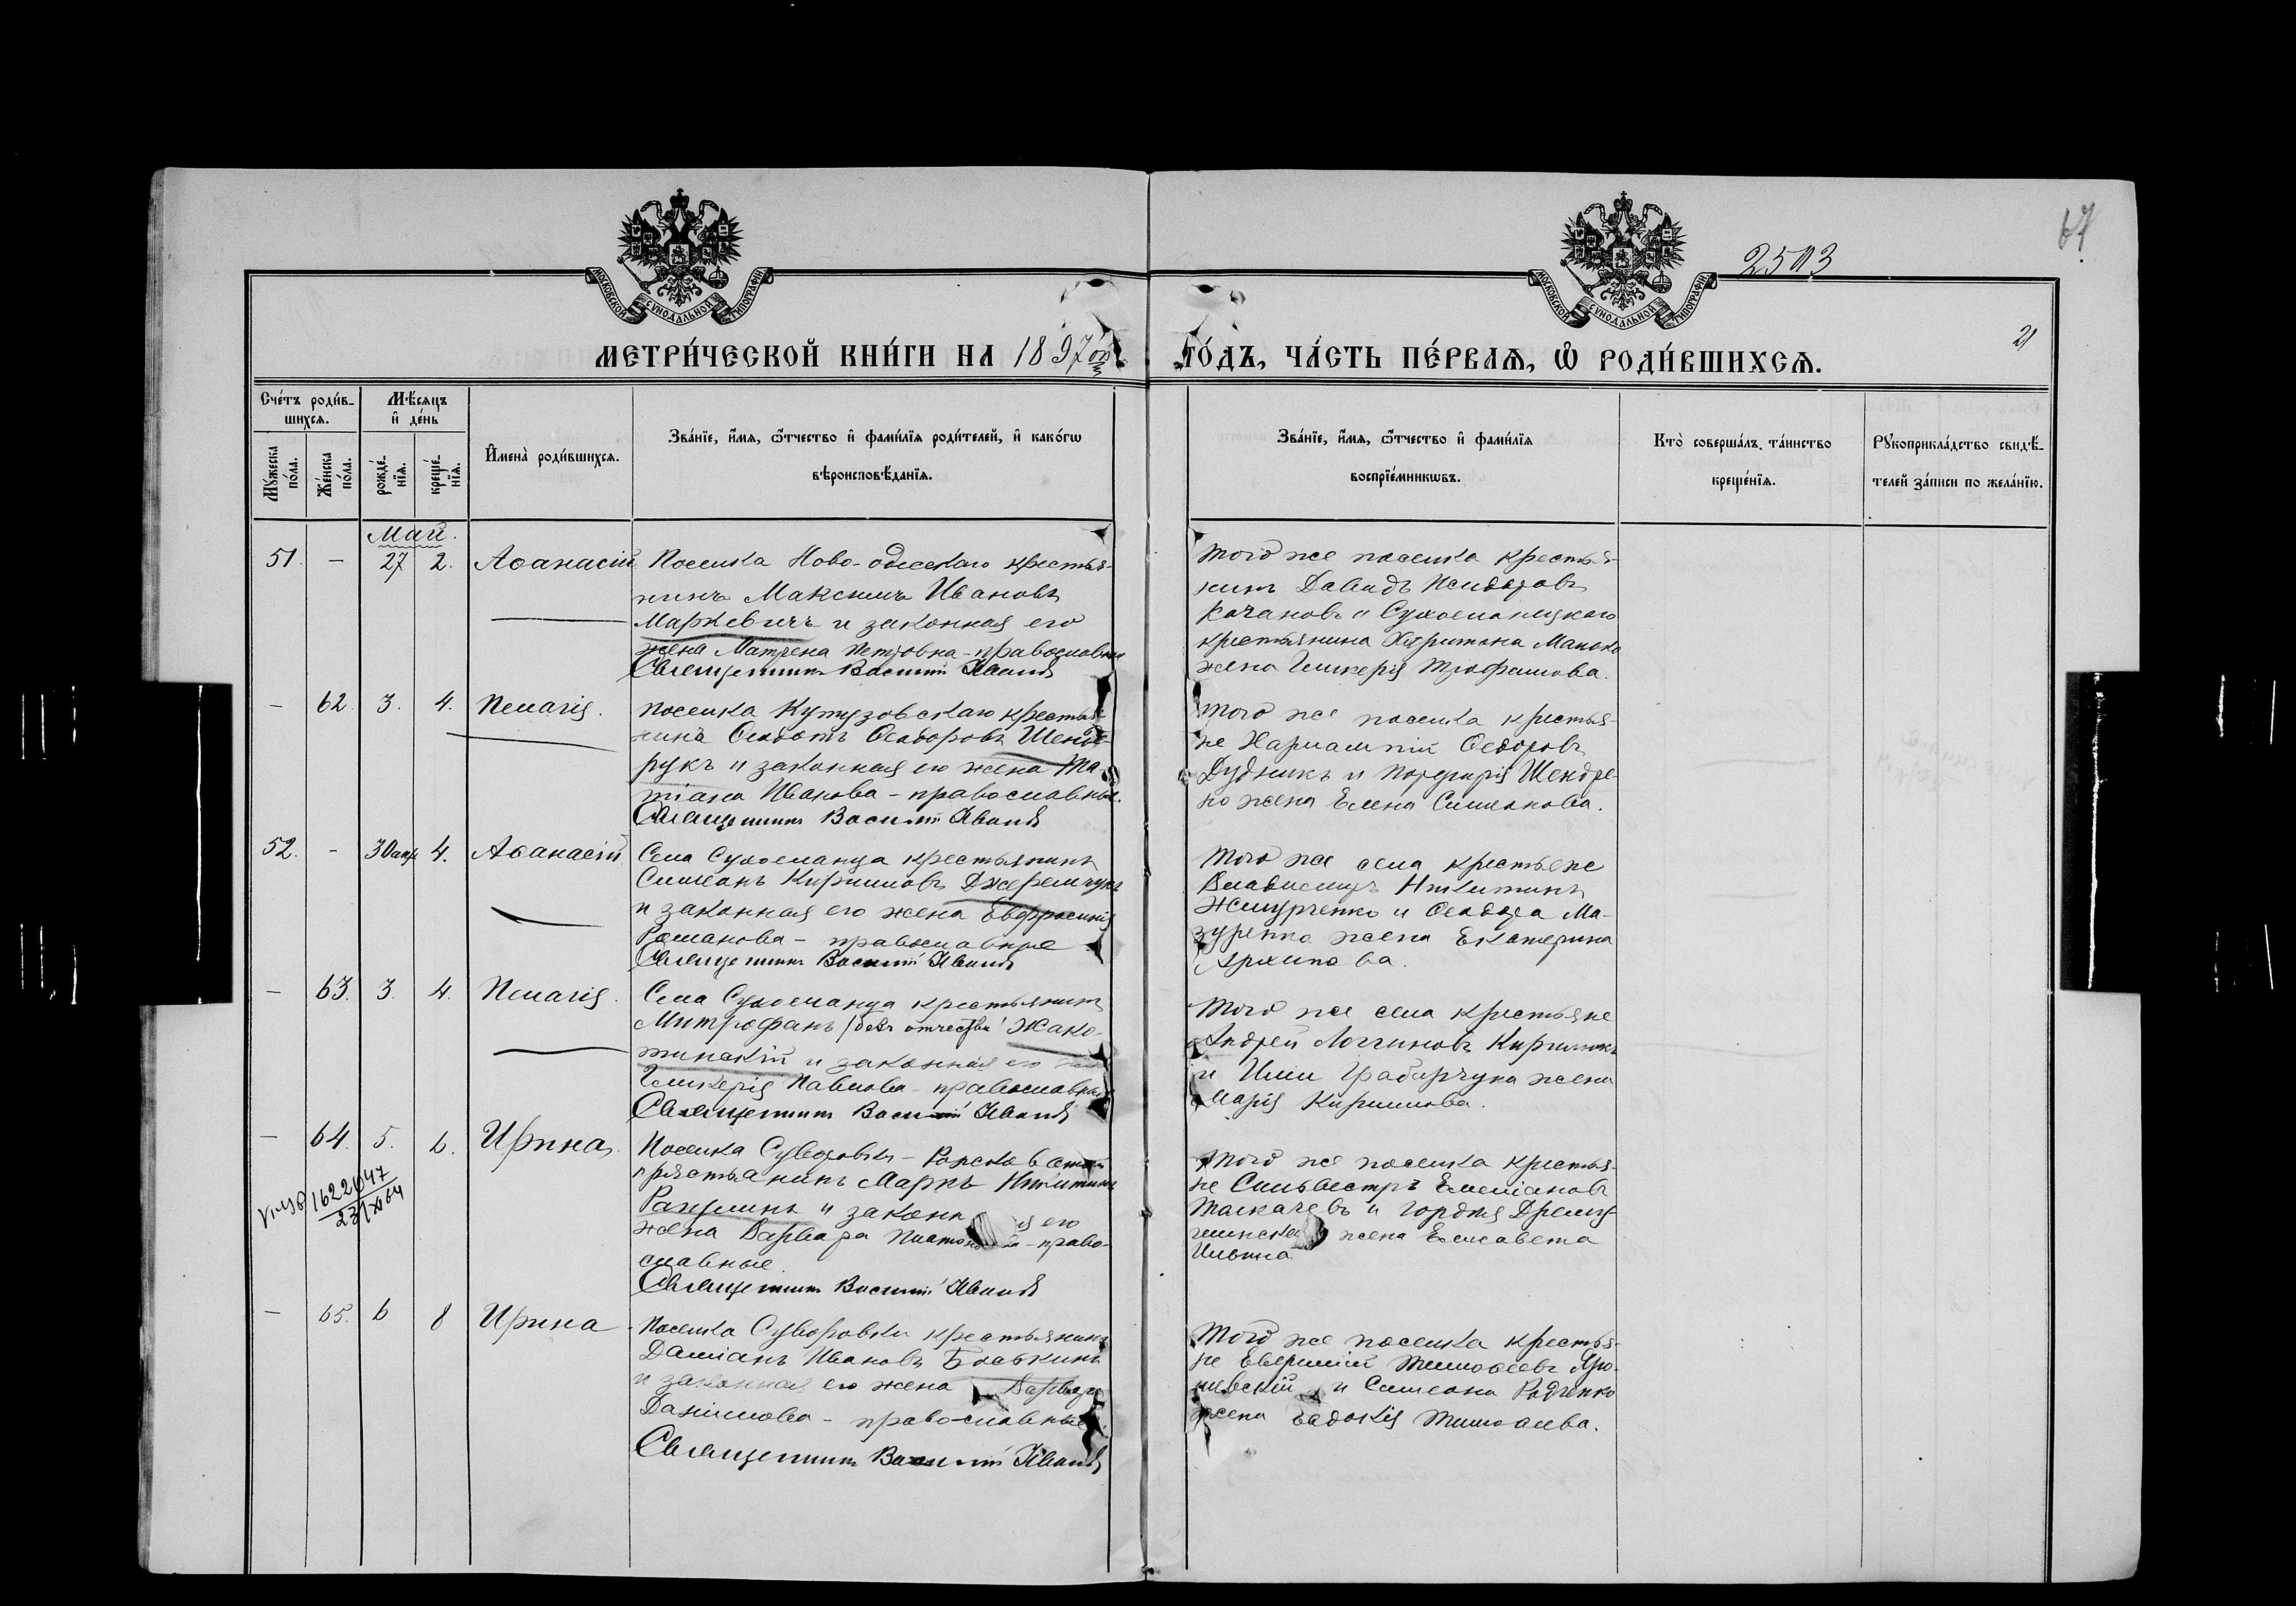 67
2503
21
МОСКОВСКОЙ СѴНОДАЛЬНОЙ ТИПОГРАФІИ
МОСКОВСКОЙ СѴНОДАЛЬНОЙ ТИПОГРАФІИ
МЕТРИ́ЧЕСКОЙ КНИ́ГИ НА 1897ой
ГО́ДЪ, ЧА́СТЬ ПЕ́РВАЯ, Ѡ҆ РОДИ́ВШИХСЯ.
Сче́тъ роди́в-
шихся.
Мѣ́сяцъ
и҆ де́нь
Мꙋ́жеска по́ла.
Же́нска по́ла.
рожде́-нїя.
креще́-нїя.
И҆мена̀ роди́вшихся.
Зва́нїе, и҆́мя, ѻ҆́тчество и҆ фами́лїя роди́телей, и҆ како́гѡ
вѣроисповѣ́данїя.
Зва́нїе, и҆́мя, ѻ҆́тчество и҆ фами́лїя
воспрїе́мникѡвъ.
Кто̀ соверша́лъ та́инство
креще́нїя.
Рꙋкоприкла́дство свидѣ́-
телей за́писи по жела́нїю.
Май.
51. - 27 2. Аѳанасій
Поселка Ново-одесскаго крестья-
нинъ Максимъ Ивановъ
Маркевичъ и законная его
жена Матрена Петровна - православные
Священникъ Василій
того же поселка крестья-
нинъ Давидъ Исидоровъ
Качановъ и Сухоеланецкаго
крестьянина Харитона
жена Гликерія Трофимова.
- 62. 3. 4. Пелагія.
поселка Кутузовскаго крестья-
нинъ Ѳеодотъ Ѳеодоровъ Шенде-
рукъ и законная его жена Та-
тіана Иванова - православные.
Священникъ Василій
того же поселка крестья-
не Харлампій Ѳеодоровъ
Дудникъ и Порфирія
жена Елена Симеонова.
52. - 30 апр 4. Аѳанасій
Села Сухоеланца крестьянинъ
Симеонъ Кирилловъ Джеремчукъ
и законная его жена Евфросинія
Романова - православные
Священникъ Василій
того же села крестьяне
Владимиръ Никитинъ
и Ѳеодора Ма-
зуренко жена Екатерина
Архипова.
- 63. 3. 4. Пелагія.
Села Сухоеланца крестьянинъ
Митрофанъ /безъ отчества/
и законная его жена
Гликерія Павлова - православные
Священникъ Василій
того же села крестьяне
Андрей Логгиновъ
и Иліи Грабарчука жена
Марія Кириллова.
- 64. 5. 6. Ирина.
1622047
23/XI 64
Поселка Суворовки -
крестьянинъ Маркъ Никитинъ
и законная его
жена Варвара - право-
славные.
Священникъ Василій
того же поселка крестья-
не Сильвестръ Емеліановъ
Ткачевъ и Гордія
жена Елисавета
Ильина
- 65. 6 8 Ирина
Поселка Суворовки крестьянинъ
Даміанъ Ивановъ Боськинъ
и законная его жена Варвара
Даніилова - православные.
Священникъ Василій
того же поселка крестья-
не Евфимій Тимоѳеевъ
и Симеона Радченко
жена Евдокія Тимоѳеева.